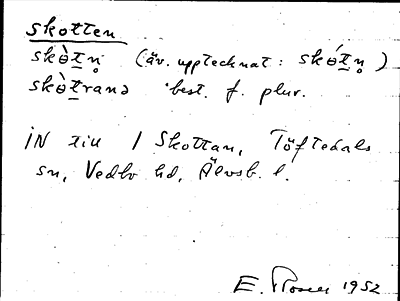 skotten
skò̱tn̥ (äv. upptecknat: skótn̥)
skòtranə best. f. plur.
IN till 1 Skottan, Töftedals
sn, Vedbo hd, Älvsb. l.
E. 1952